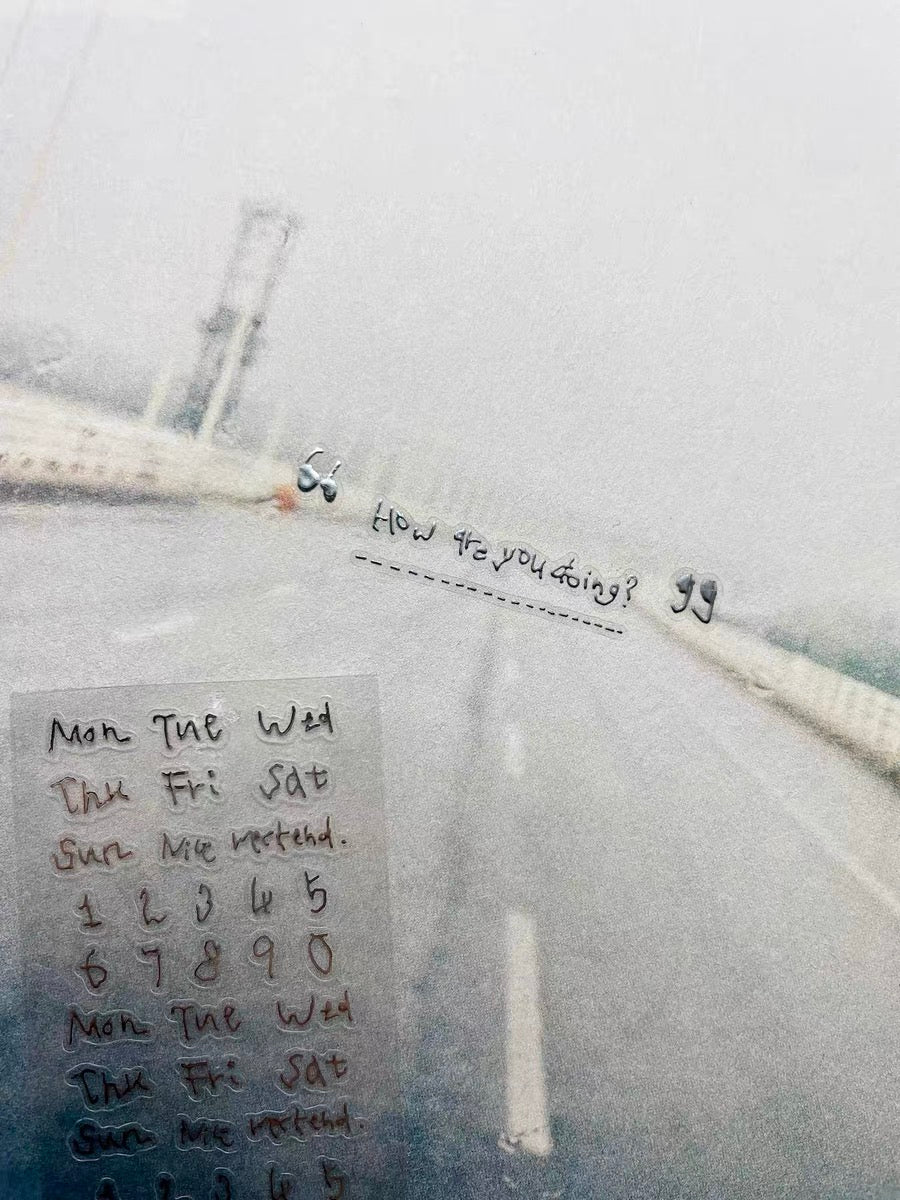 “ How are you doing? ”
Mon Tue Wed
Thu Fri Sat
Sun Nice weekend.
1 2 3 4 5
6 7 8 9 0
Mon Tue Wed
Thu Fri Sat
Sun Nice weekend.
1 2 3 4 5